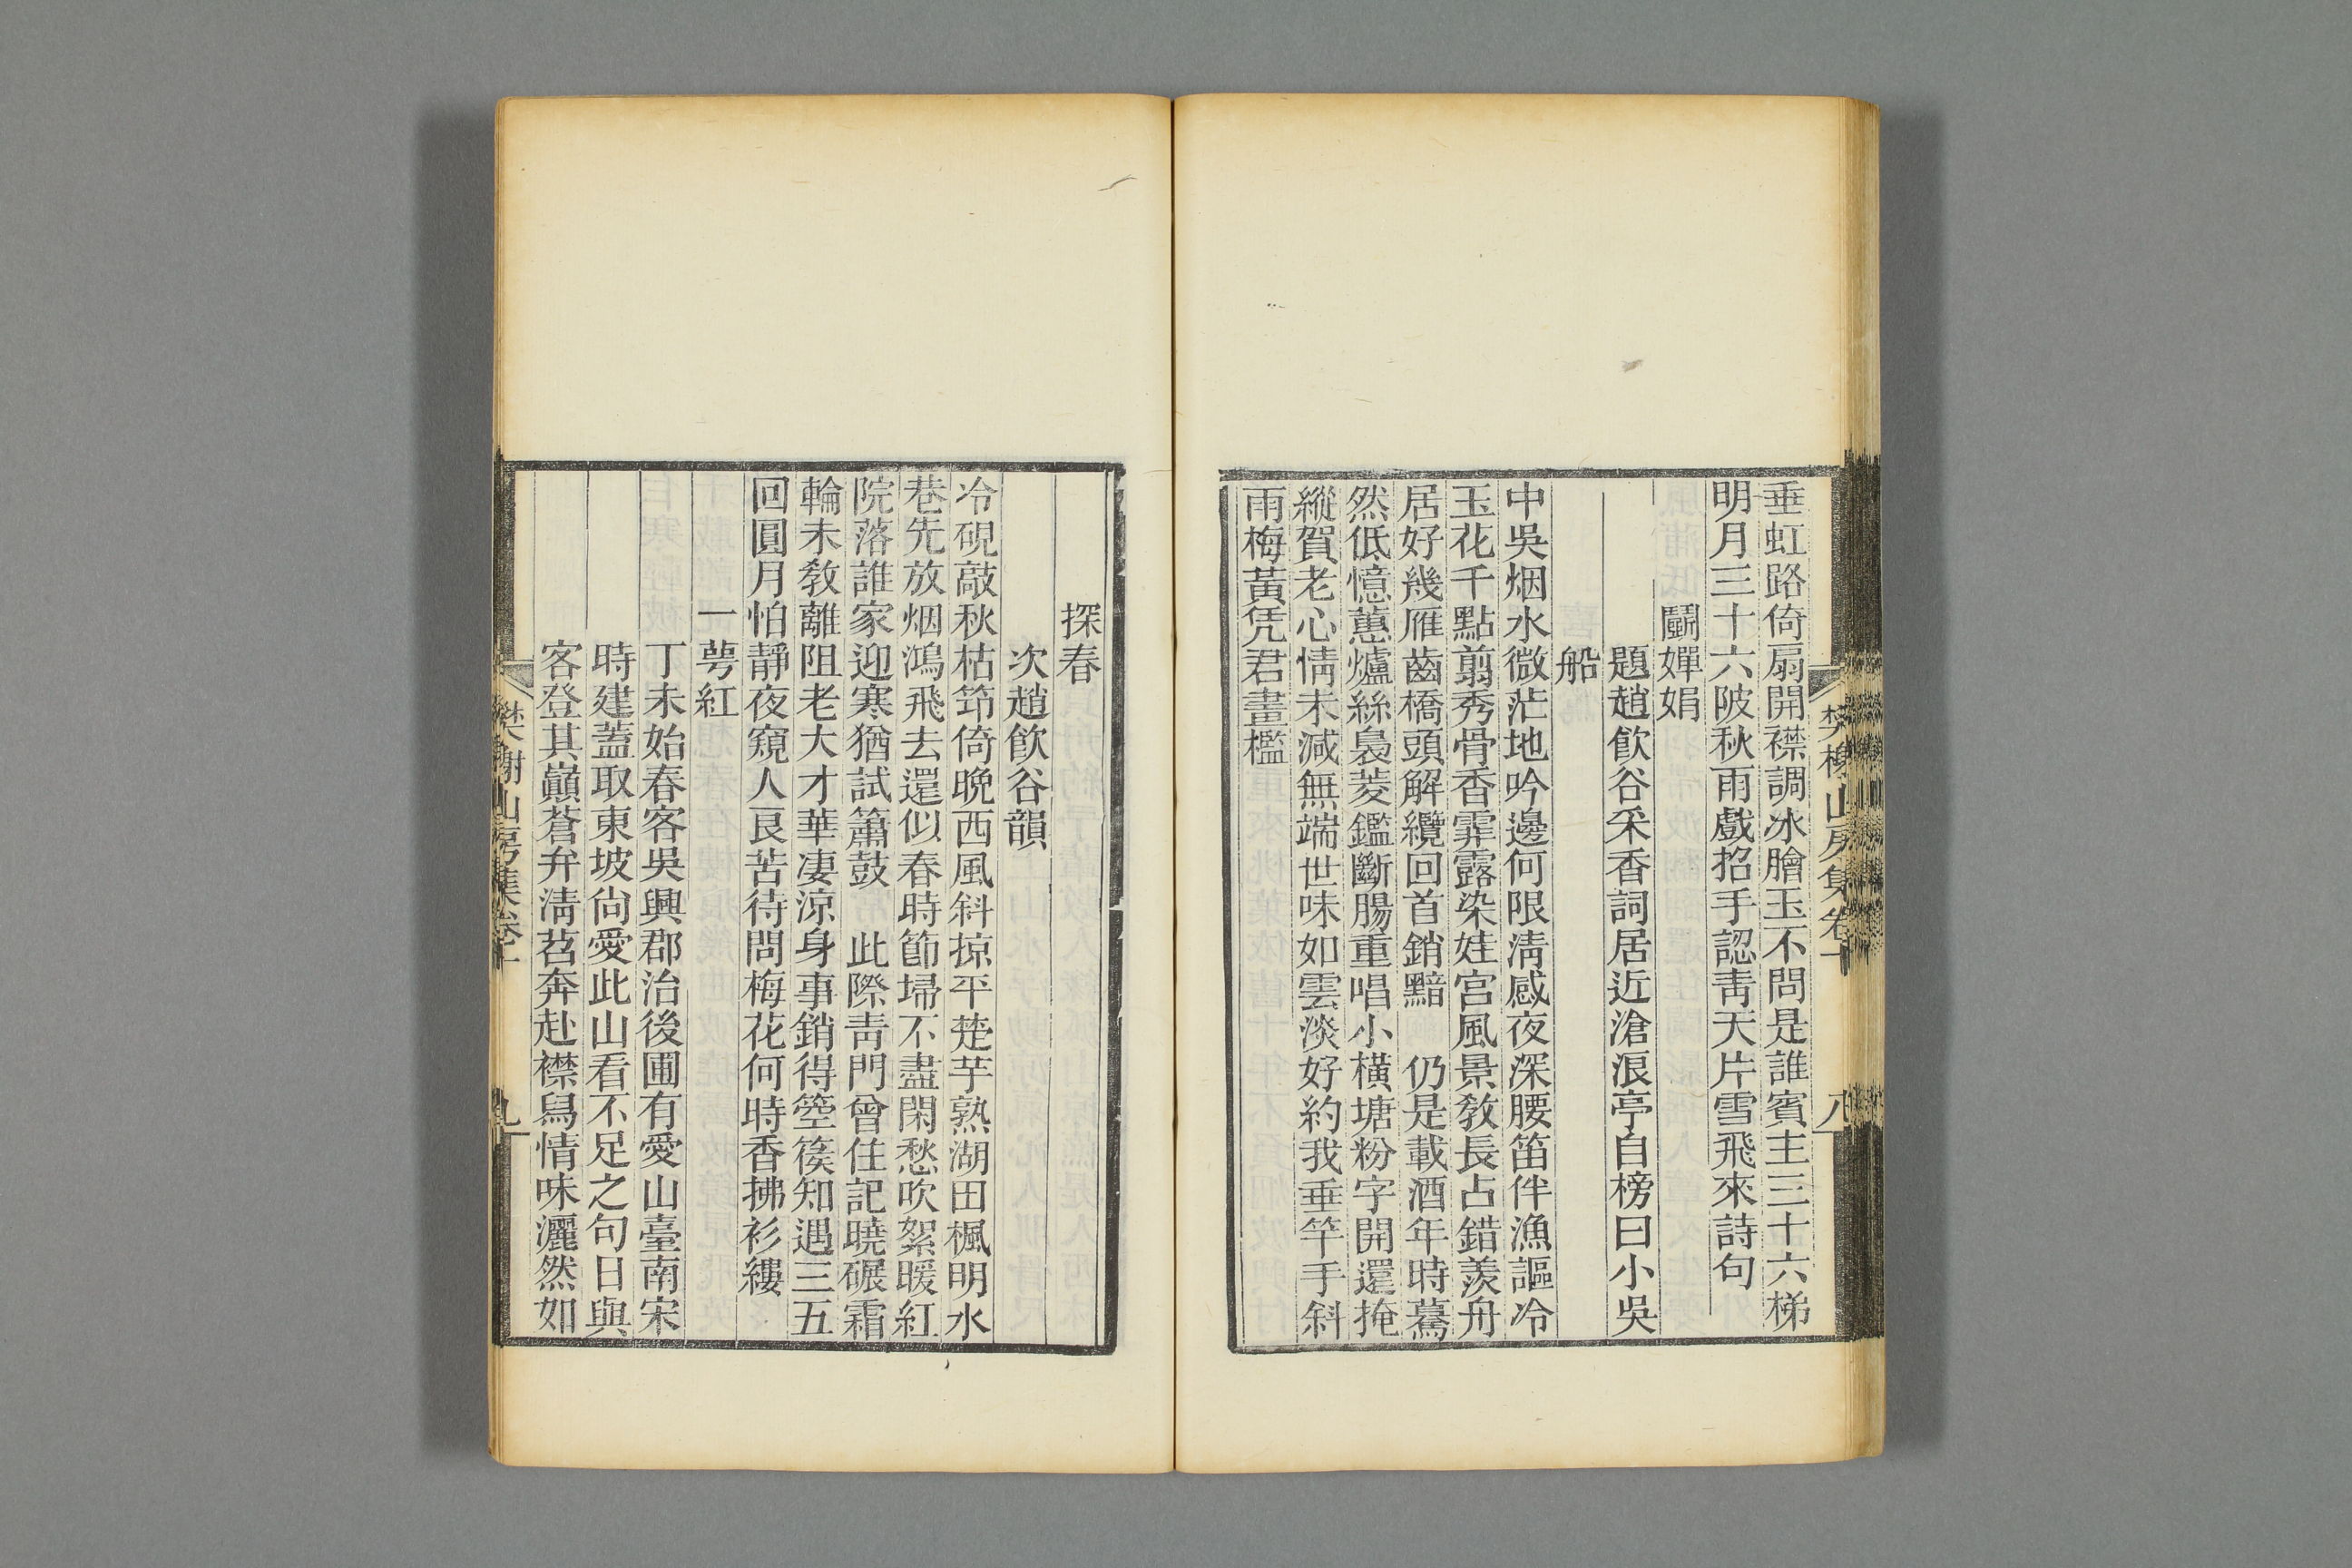 垂虹路倚扇開襟調冰膾玉不問是誰賓主三十六梯
明月三十六陂秋雨戲招手認靑天片雪飛來詩句
鬭嬋娟
題趙飮谷采香詞居近滄浪亭自榜曰小吳
船
中吳烟水微茫地吟邊何限淸感夜深腰笛伴漁謳冷
玉花千點翦秀骨香霏露染娃宮風景敎長占錯羨舟
居好幾雁齒橋頭解纜回首銷黯　仍是載酒年時驀
然低憶蕙爐絲裊菱鑑斷腸重唱小橫塘粉字開還掩
縱賀老心情未減無端世味如雲淡好約我垂竿手斜
雨梅黃凭君畫檻
樊榭山房集卷十
八
探春
次趙飮谷韻
冷硯敲秋枯笻倚晚西風斜掠平楚芋熟湖田楓明水
巷先放烟鴻飛去還似春時節埽不盡閑愁吹絮暖紅
院落誰家迎寒猶試簫鼓　此際靑門曾住記曉碾霜
輪未敎離阻老大才華凄涼身事銷得箜篌知遇三五
回圓月怕靜夜窺人良苦待問梅花何時香拂衫縷
一萼紅
丁未始春客吳興郡治後圃有愛山臺南宋
時建蓋取東坡尙愛此山看不足之句日與
客登其巔蒼弁淸苕奔赴襟舄情味灑然如
樊榭山房集卷十
九